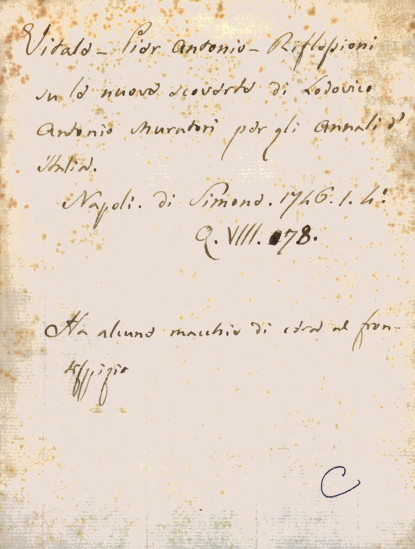 Vitale - Pier Antonio - Riflessioni
su le nuove scoverte di Lodovico
Antonio Muratori per gli Annali d'
Italia.
Napoli. di Simone. 1746. 1. 4º
Q. VIII. 78.
Ha alcune macchie di cera al fron-
tispizio
C